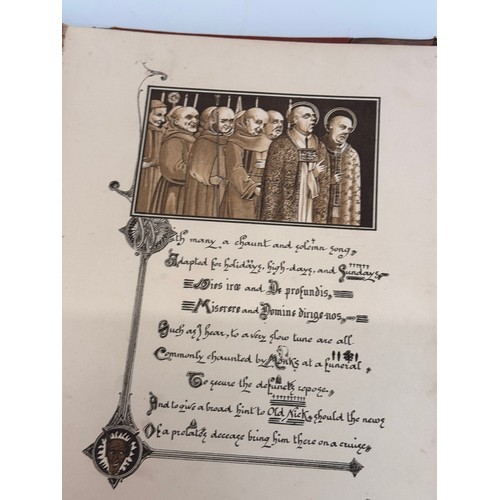 With many a chaunt and solemn song,
Adapted for holidays, high-days, and Sundays
Dies iræ and De profundis,
Miserere and Domine dirige nos,
Such as I hear, to a very slow tune are all
Commonly chaunted by Monks at a funeral
To secure the defunct's repose,
And to give a broad hint to Old Nick, should the news
Of a prelate's decease bring him there on a cruise,